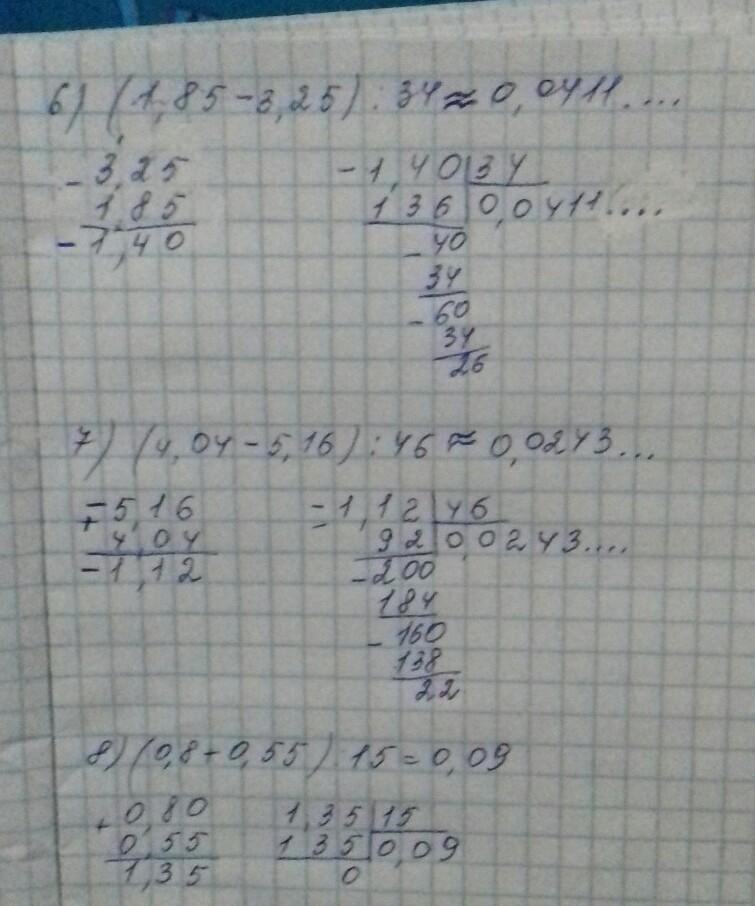 6) (1,85-3,25) : 34 ≈ 0,0411....
- 3,25
1,85
- 1,40
- 1,40 | 34
136 | 0,0411....
- 40
34
- 60
34
26
7) (4,04-5,16) : 46 ≈ 0,0243...
- 5,16
+ 4,04
- 1,12
- 1,12 | 46
92 | 0,0243....
- 200
184
- 160
138
22
8) (0,8+0,55) : 15 = 0,09
+ 0,80
0,55
1,35
1,35 | 15
135 | 0,09
0